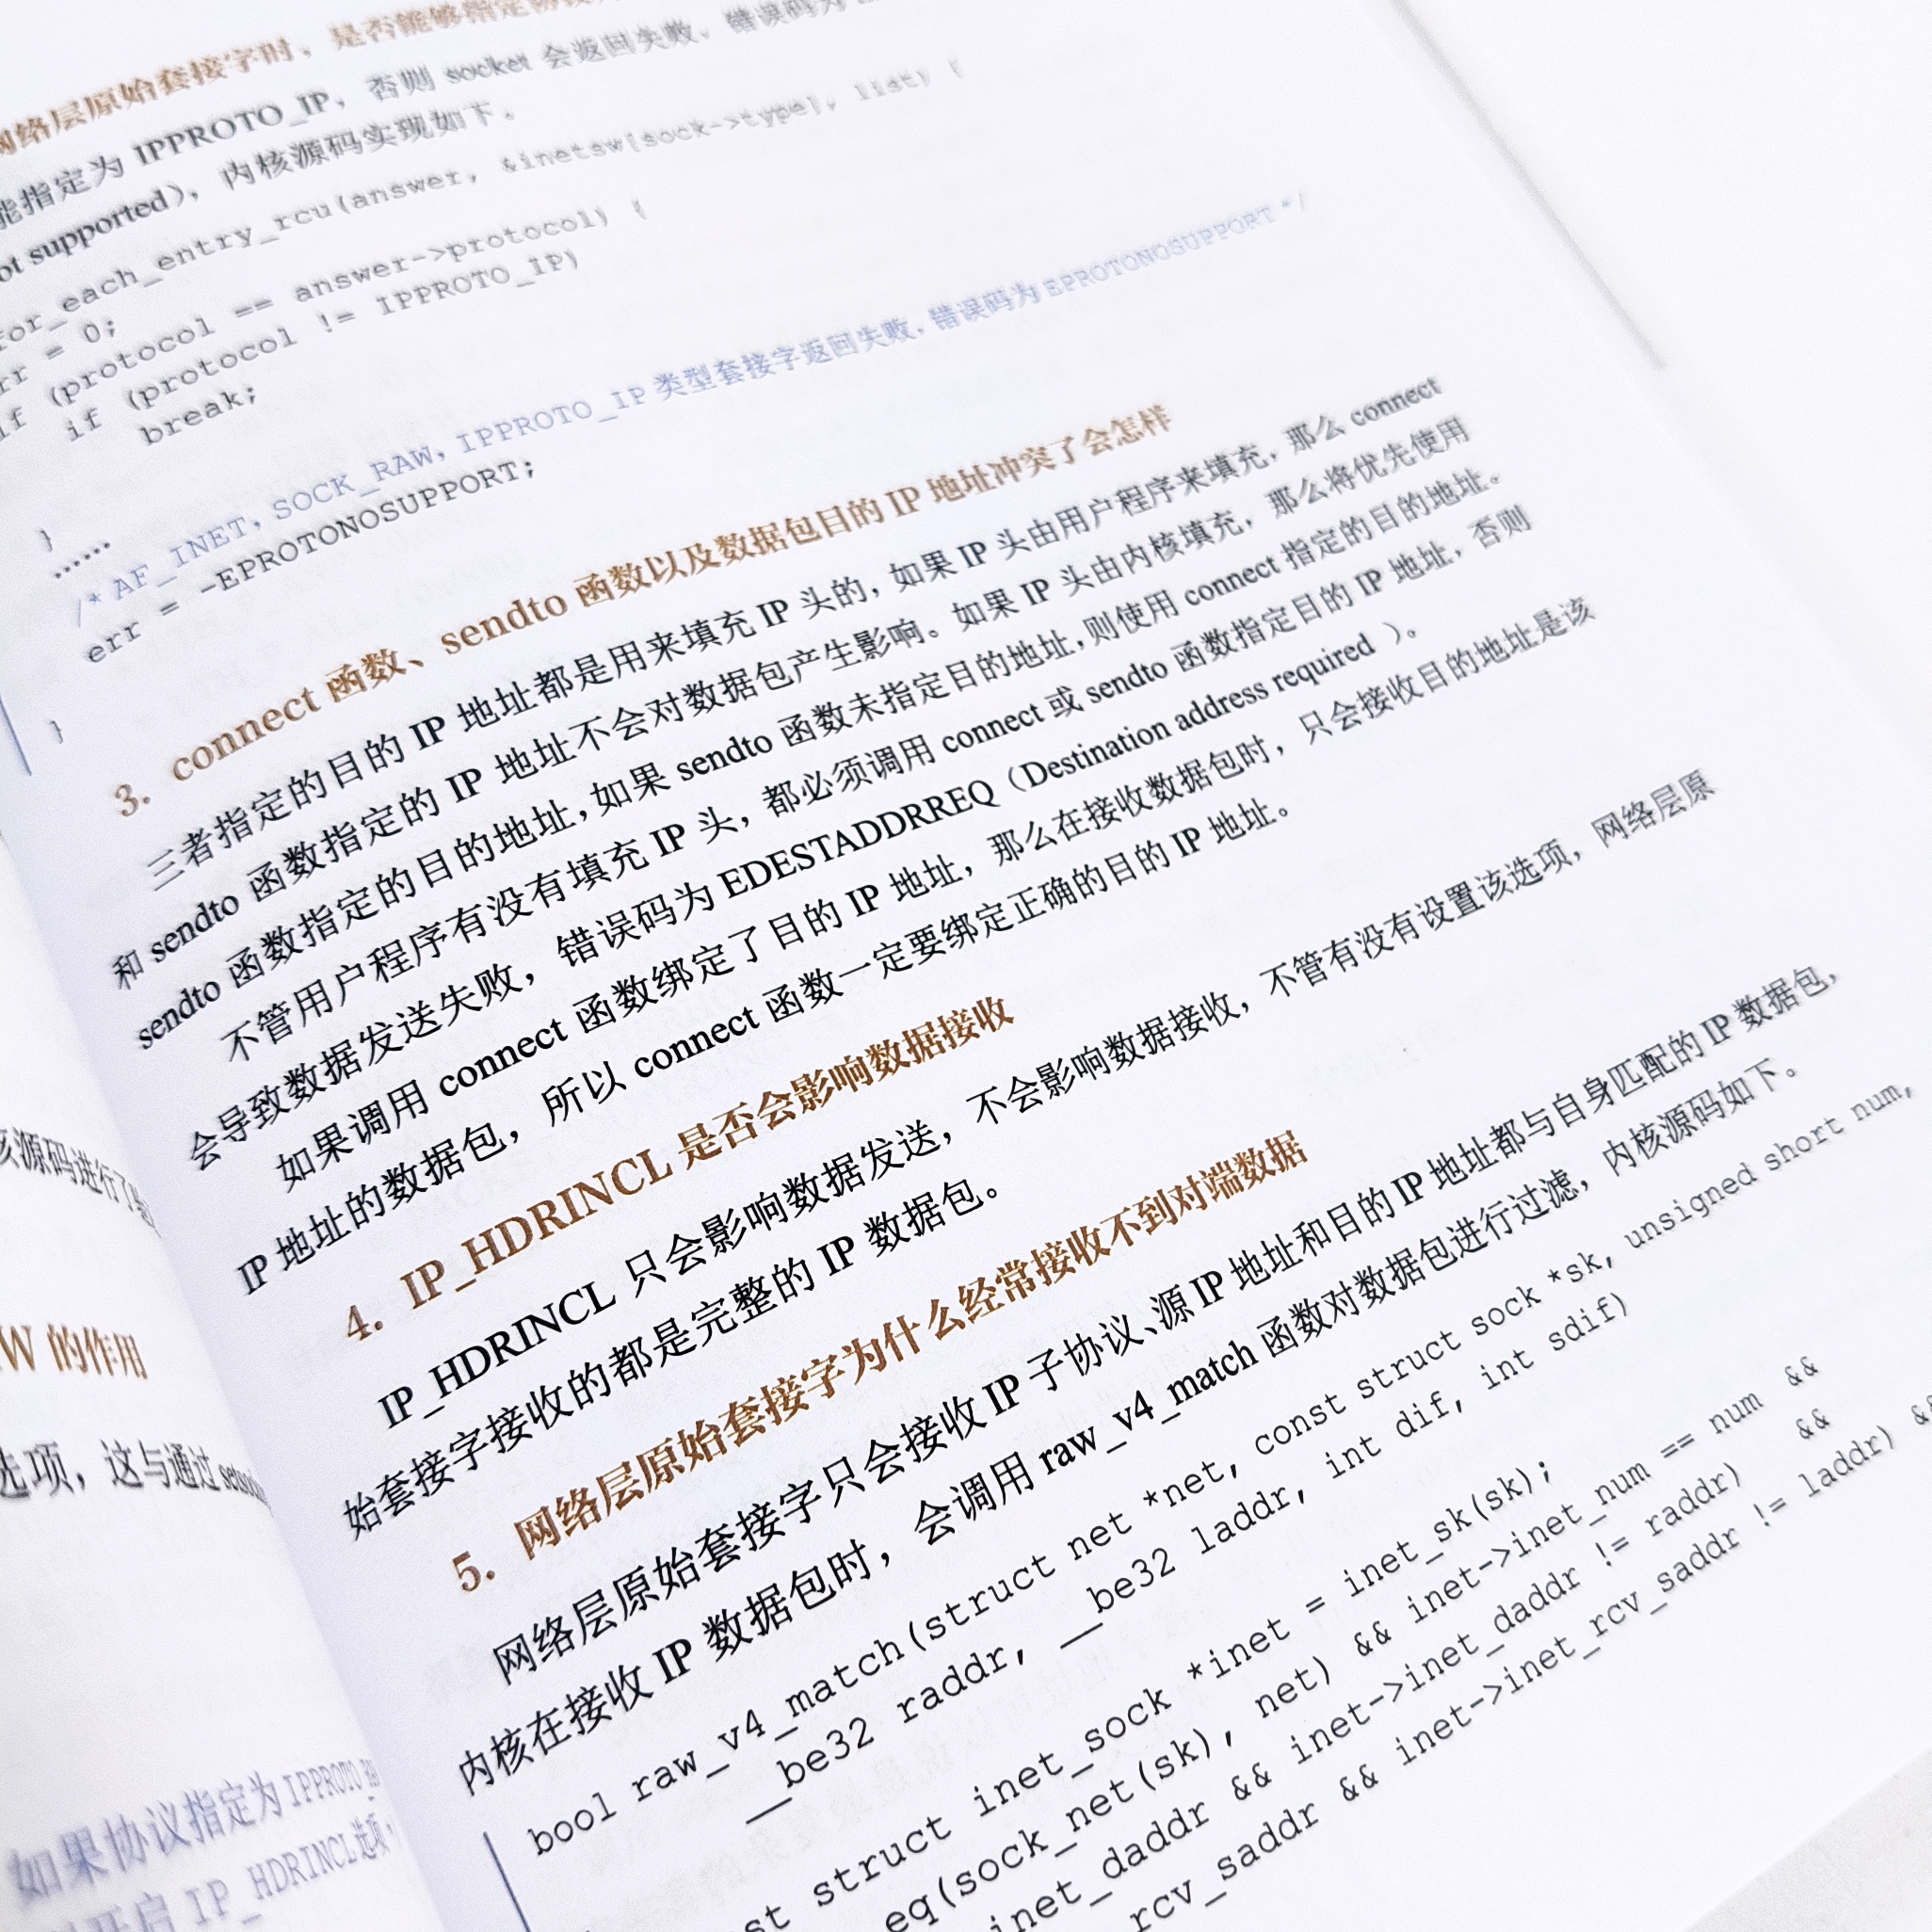 网络层原始套接字时，是否能够指定协议
能指定为 IPPROTO_IP，否则 socket 会返回失败，错误码为
ot supported），内核源码实现如下。
for_each_entry_rcu(answer, &inetsw[sock->type], list) {
rr = 0;
if (protocol == answer->protocol) {
if (protocol != IPPROTO_IP)
break;
}
......
/* AF_INET，SOCK_RAW，IPPROTO_IP 类型套接字返回失败，错误码为 EPROTONOSUPPORT */
err = -EPROTONOSUPPORT;
}
3. connect 函数、sendto 函数以及数据包目的 IP 地址冲突了会怎样
三者指定的目的 IP 地址都是用来填充 IP 头的，如果 IP 头由用户程序来填充，那么 connect
和 sendto 函数指定的 IP 地址不会对数据包产生影响。如果 IP 头由内核填充，那么将优先使用
sendto 函数指定的目的地址，如果 sendto 函数未指定目的地址，则使用 connect 指定的目的地址。
不管用户程序有没有填充 IP 头，都必须调用 connect 或 sendto 函数指定目的 IP 地址，否则
会导致数据发送失败，错误码为 EDESTADDRREQ（Destination address required ）。
如果调用 connect 函数绑定了目的 IP 地址，那么在接收数据包时，只会接收目的地址是该
IP 地址的数据包，所以 connect 函数一定要绑定正确的目的 IP 地址。
4. IP_HDRINCL 是否会影响数据接收
IP_HDRINCL 只会影响数据发送，不会影响数据接收，不管有没有设置该选项，网络层原
始套接字接收的都是完整的 IP 数据包。
5. 网络层原始套接字为什么经常接收不到对端数据
网络层原始套接字只会接收 IP 子协议、源 IP 地址和目的 IP 地址都与自身匹配的 IP 数据包，
内核在接收 IP 数据包时，会调用 raw_v4_match 函数对数据包进行过滤，内核源码如下。
bool raw_v4_match(struct net *net, const struct sock *sk, unsigned short num,
__be32 raddr, __be32 laddr, int dif, int sdif)
st struct inet_sock *inet = inet_sk(sk);
eq(sock_net(sk), net) && inet->inet_num == num &&
inet_daddr && inet->inet_daddr != raddr) &&
rcv_saddr && inet->inet_rcv_saddr != laddr) &&
核源码进行了
W 的作用
选项，这与通过
如果协议指定为 IPPROTO_RA
开启 IP_HDRINCL选项，